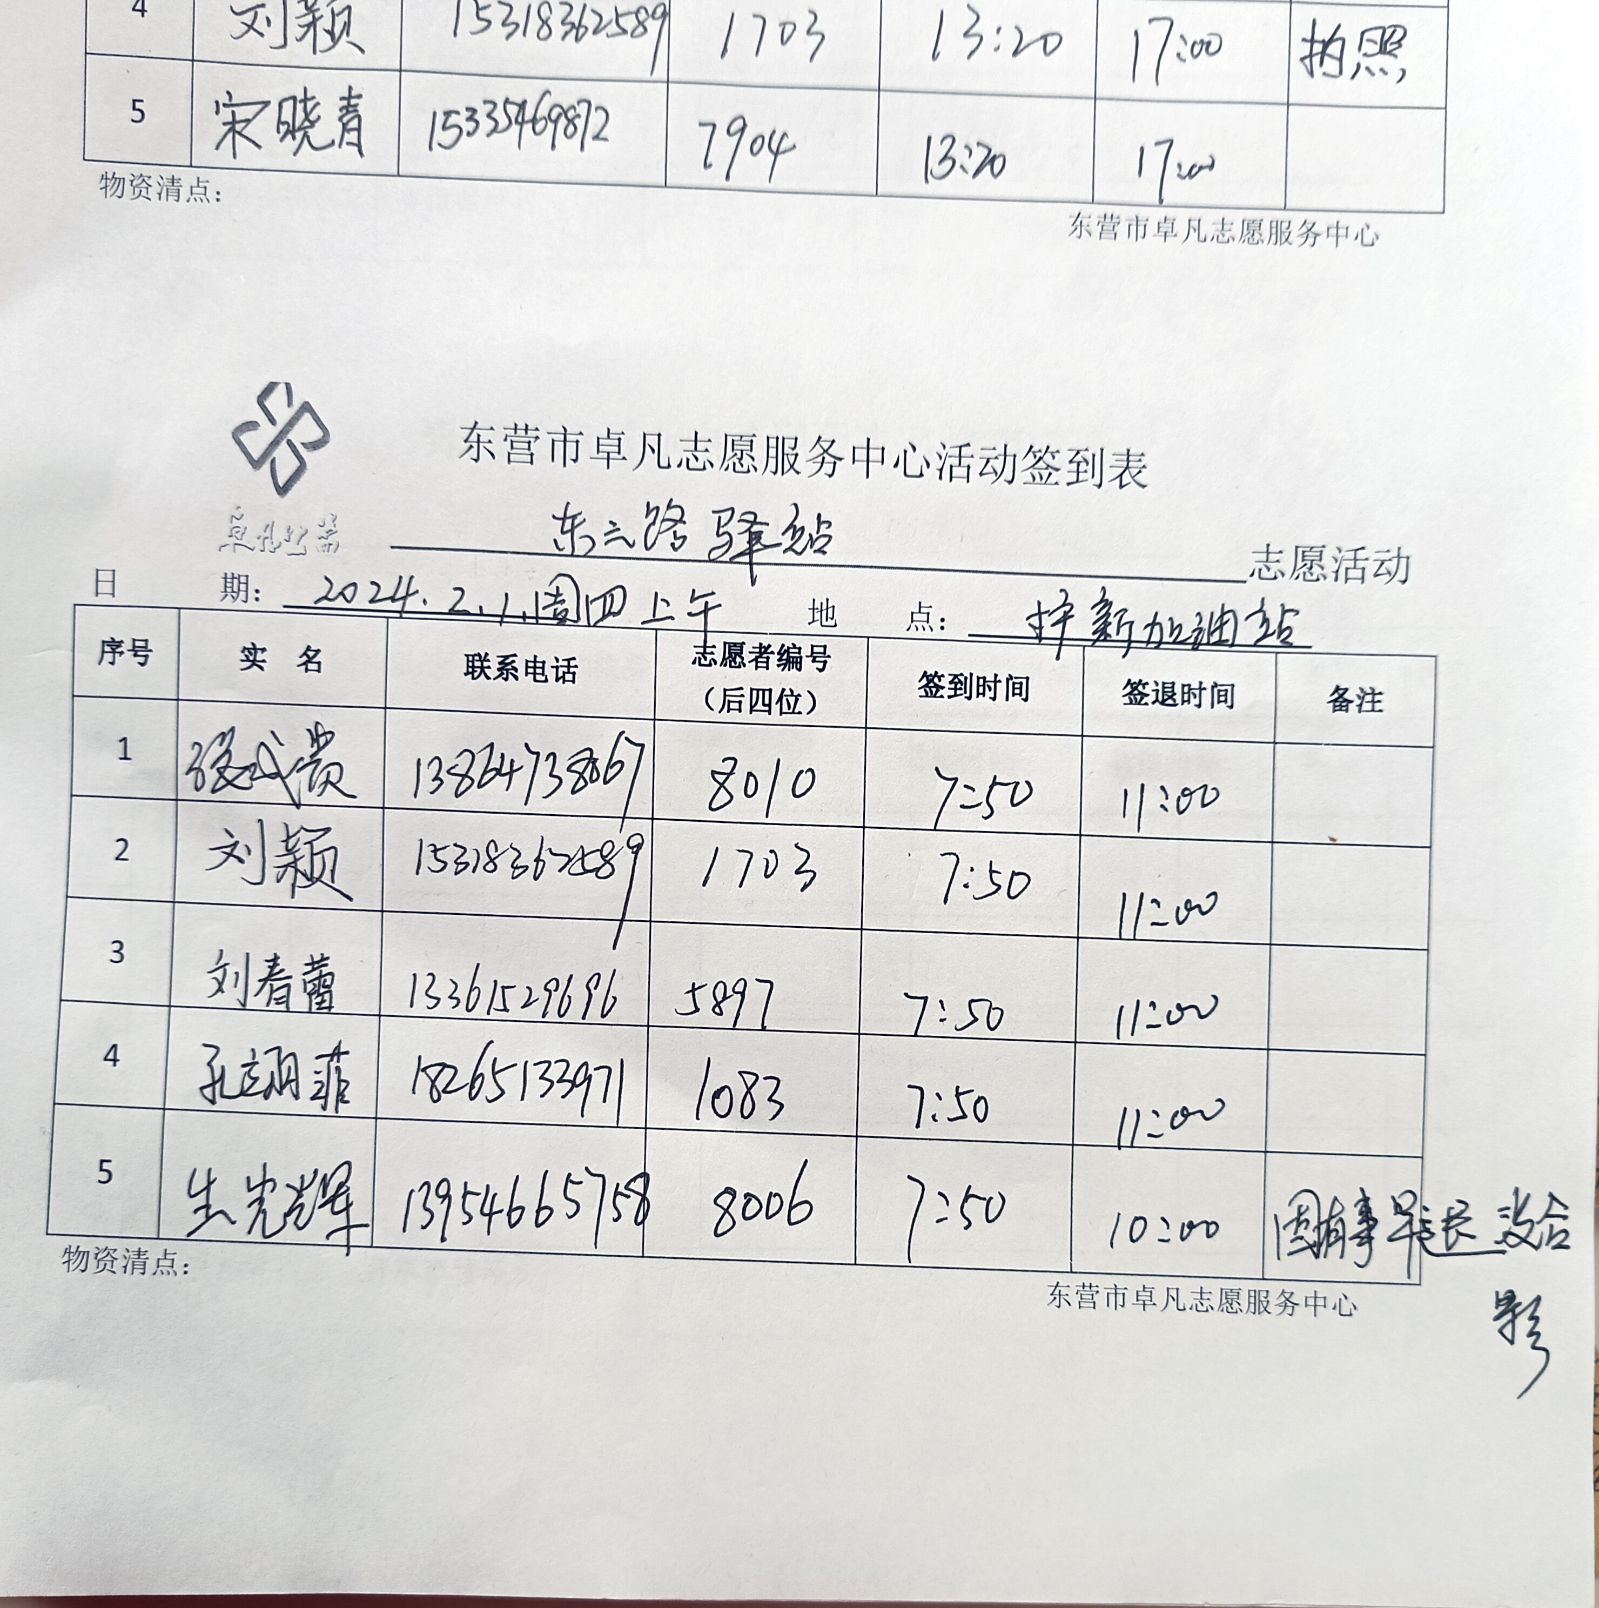 4 刘颖 15318362589 1703 13:20 17:00 拍照
5 宋晓青 15335469872 7904 13:20 17:00
物资清点：
东营市卓凡志愿服务中心
东营市卓凡志愿服务中心活动签到表
卓凡公益
东二路驿站 志愿活动
日 期：2024.2.1.周四上午 地 点：梓新加油站
序号 实 名 联系电话 志愿者编号（后四位） 签到时间 签退时间 备注
1 张成贵 13864738867 8010 7:50 11:00
2 刘颖 15318362589 1703 7:50 11:00
3 刘春蕾 13361529696 5897 7:50 11:00
4 孔翊菲 18265133971 1083 7:50 11:00
5 生光辉 13954665758 8006 7:50 10:00 因有事早退没合影
物资清点：
东营市卓凡志愿服务中心